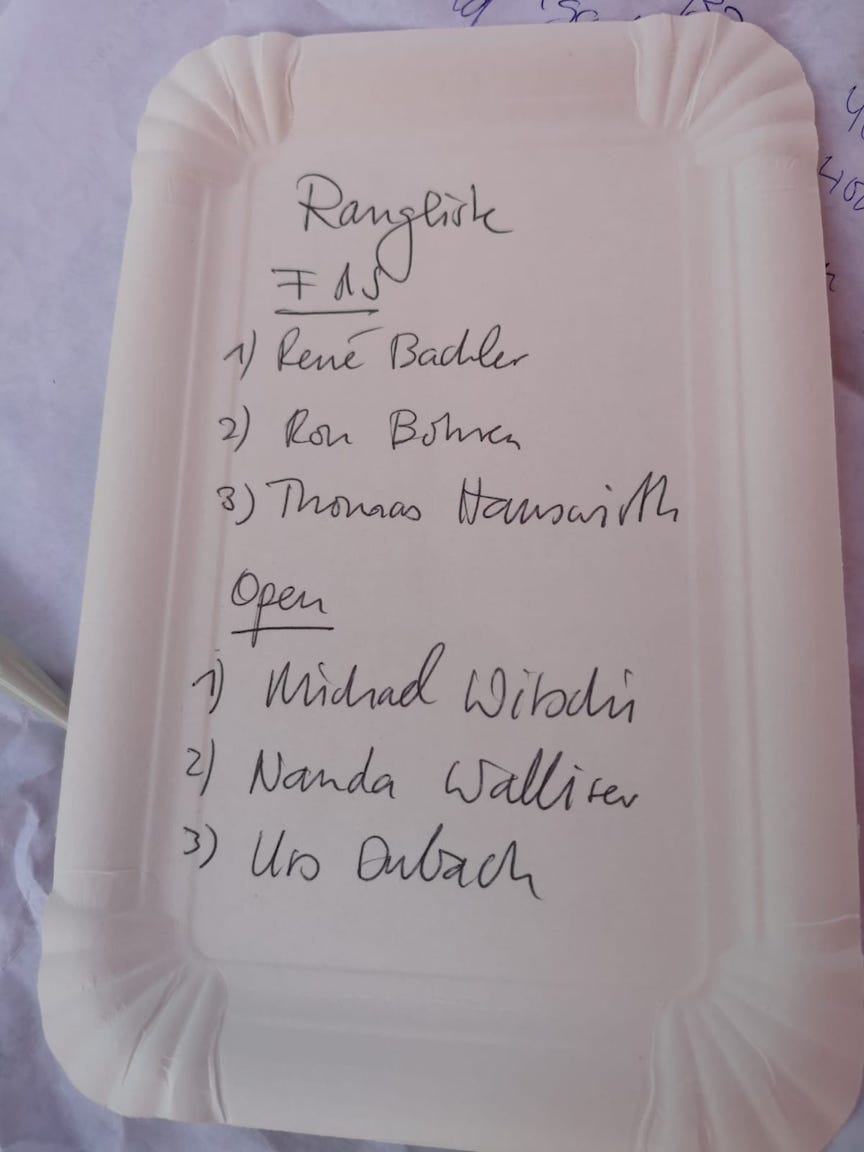 Rangliste
F15
1) René Bachler
2) Ron Bohren
3) Thomas Hauswirth
Open
1) Michael Witschi
2) Nanda Walliser
3) Urs